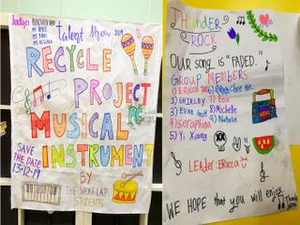 Judges
talent show 2019
RECYCLE
PROJECT
MUSICAL
INSTRUMENT
SAVE
THE DATE
13-12-19
BY
THE
STUDENTS
THUNDER
ROCK
OUR song is "FADED."
GROUP MEMBERS
1) Ericca
2) SHIRLEY
3) Evan
4) Seraphina
5) Yi Xiang
7) Eva
8) Michelle
9) Natalie
Leader: Ericca
WE HOPE that you will enjoy
Thank you